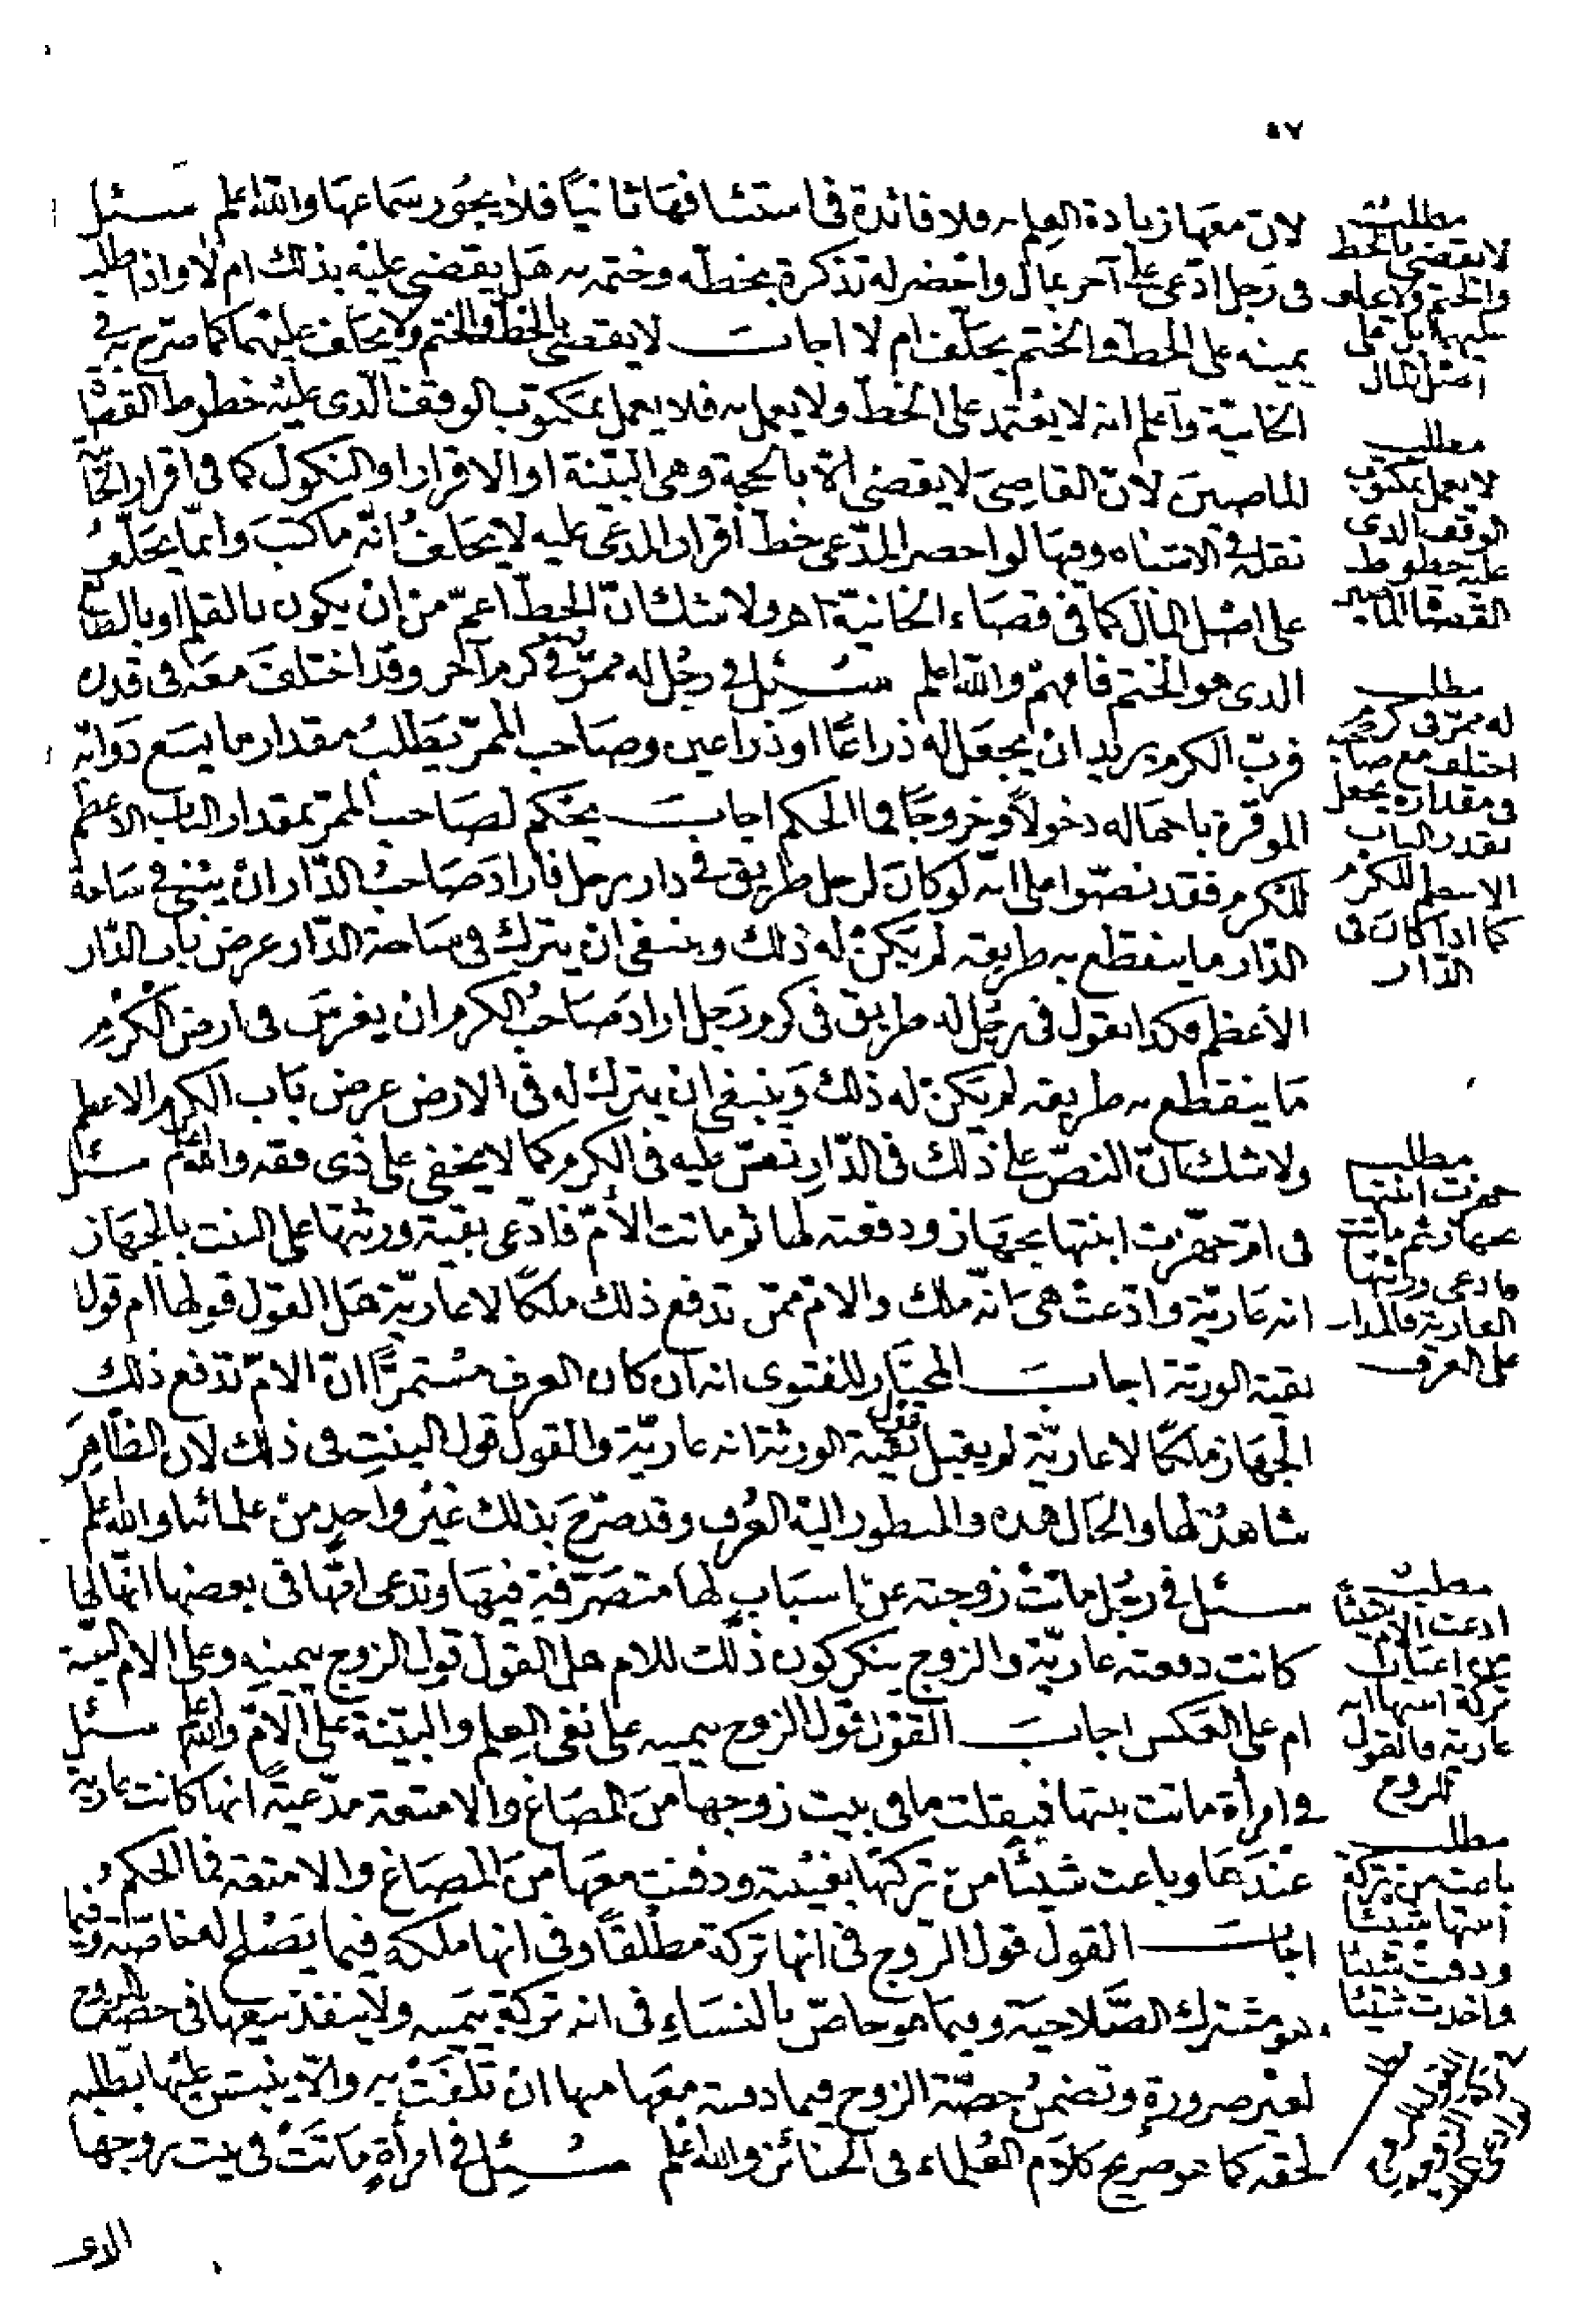 ٥٧
لان معها زيادة العلم به فلا فائدة فى استئنافها ثانياً فلا يجوز سماعها والله اعلم سئل
فى رجل ادّعى على آخر بمال واحضر له تذكرة بخطه وختمه هل يقضى عليه بذلك ام لا واذا طلب
يمينه على الخط والختم يحلف ام لا اجاب لا يقضى بالخط والختم ولا يحلف عليهما كما صرح به فى
الخانيّة واعلم انه لا يعتمد على الخط ولا يعمل به فلا يعمل بمكتوب الوقف الّذى عليه خطوط القضاة
الماضين لانّ القاضى لا يقضى الّا بالحجة وهى البيّنة او الاقرار او النكول كما فى اقرار الخانية
نقله فى الاشباه وفيها لو احضر المدّعى خط اقرار المدعى عليه لا يحلف انّه ما كتب وانّما يحلف
على اصل المال كما فى قضاء الخانيّة اهر ولا شك انّ الخط اعمّ من ان يكون بالقلم او بالطابع
الذى هو الختم فافهم والله اعلم سئل فى رجل له ممرّ فى كرم آخر وقد اختلف معه فى قدره
فربّ الكرم يريد ان يجعل له ذراعًا او ذراعين وصاحب الممرّ يطلب مقدار ما يسع دوابّه
الموقرة باحماله دخولاً وخروجًا فما الحكم اجاب يحكم لصاحب الممرّ بمقدار الباب الاعظم
للكرم فقد نصّوا على انه لو كان لرجل طريق فى دار رجل فاراد صاحب الدّار ان يبنى فى ساحة
الدّار ما ينقطع به طريقه لم يكن له ذلك وينبغى ان يترك فى ساحة الدّار عرض باب الدّار
الأعظم فكذا نقول فى رجل له طريق فى كرم رجل اراد صاحب الكرم ان يغرس فى ارض الكرم
ما ينقطع به طريقه لم يكن له ذلك وينبغى ان يترك له فى الارض عرض باب الكرم الاعظم
ولا شك انّ النصّ على ذلك فى الدّار نصّ عليه فى الكرم كما لا يخفى على ذى فقه والله اعلم سئل
فى امّ جهّزت ابنتها بجهاز ودفعته لها ثم ماتت الأمّ فادّعى بقية ورثتها على البنت بالجهاز
انه عاريّة وادّعت هى انّه ملك والامّ ممّن تدفع ذلك ملكًا لا عاريّة هل القول قولها ام قول
بقية الورثة اجاب المختار للفتوى انه ان كان العرف مستمرًّا انّ الامّ تدفع ذلك
الجهاز ملكًا لا عاريّة لم يقبل قول بقيّة الورثة انه عاريّة والقول قول البنت فى ذلك لان الظّاهر
شاهد لها والحال هذه والمنظور اليه العرف وقد صرّح بذلك غير واحد من علمائنا والله اعلم
سئل فى رجل ماتت زوجته عن اسباب لها متصرّفة فيها وتدعى امّها فى بعضها انّها لها
كانت دفعته عاريّة والزوج ينكر كون ذلك للام هل القول قول الزوج بيمينه وعلى الام البيّنة
ام على العكس اجاب القول قول الزوج بيمينه على نفى العلم والبيّنة على الامّ والله اعلم سئل
فى امرأة ماتت بنتها فنقلت ما فى بيت زوجها من المصاغ والامتعة مدّعية انها كانت عارية
عندها وباعت شيئًا من تركتها بغيبته ودفنت معها من المصاغ والامتعة فما الحكم
اجاب القول قول الزوج فى انها تركة مطلقًا وفى انها ملكه فيما يصلح له خاصّة وفيما
هو مشترك الصّلاحيّة وفيما هو خاصّ بالنساء فى انه تركة بيمينه ولا ينفذ بيعها فى حصّة الزوج
لغير ضرورة وتضمن حصّة الزوج فيما دفنته معها منها ان تلفت به والّا ينبش عليها بطلبه
لحقه كما هو صريح كلام العلماء فى الجنائز والله اعلم سئل فى امرأة ماتت فى بيت زوجها
مطلب
لا يقضى بالخط
والختم ولا يحلف
عليهما بل على
اصل المال
مطلب
لا يعمل بمكتوب
الوقف الذى
عليه خطوط
القضاة الماضين
مطلب
له ممرّ فى كرم
اختلف مع صاحبه
فى مقداره يجعل
بقدر الباب
الاعظم للكرم
كما اذا كان فى
الدّار
مطلب
جهزت ابنتها
بجهاز ثم ماتت
فادعى ورثتها
العارية فالمدار
على العرف
مطلب
ادعت الام شيئا
من اعيان
تركة ابنتها انه
عارية فالقول
للزوج
مطلب
باعت من تركة
ابنتها شيئا
ودفنت شيئا
واخذت شيئا